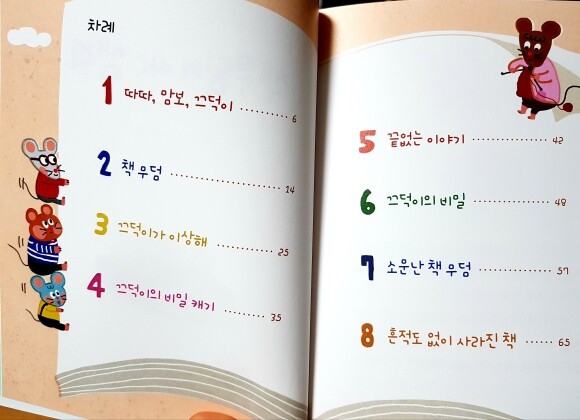 차례
1 따따, 암보, 끄덕이 .......... 6
2 책 무덤 .................. 14
3 끄덕이가 이상해 ......... 25
4 끄덕이의 비밀 캐기 ....... 35
5 끝없는 이야기 .............. 42
6 끄덕이의 비밀 .............. 48
7 소문난 책 무덤 ............. 57
8 흔적도 없이 사라진 책 ...... 65